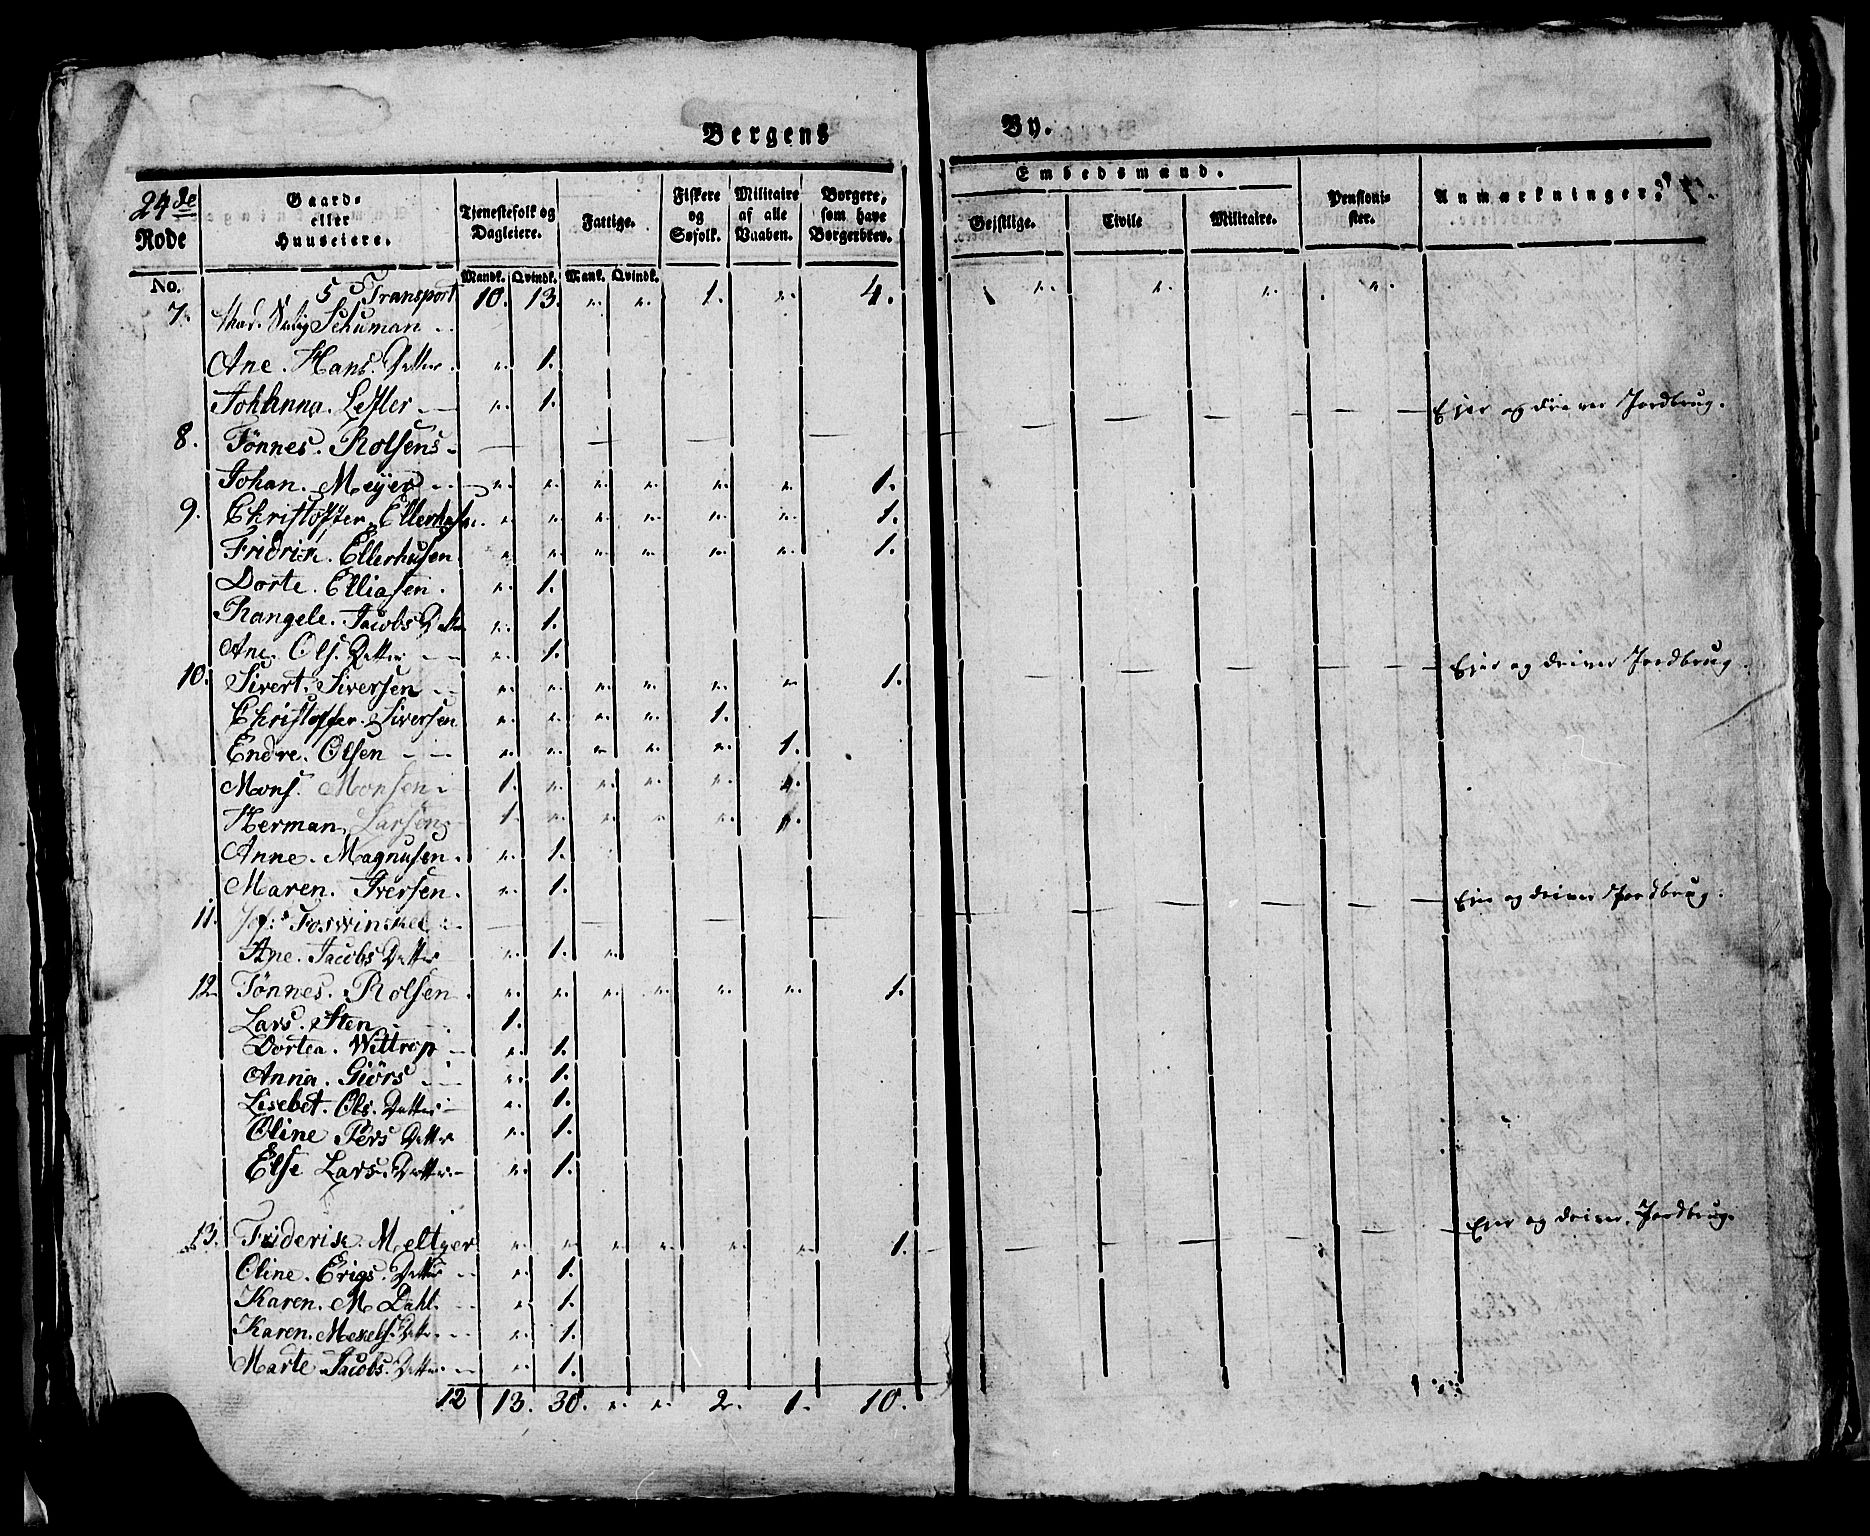 Bergens By.
24de Rode
Gaard- eller Huuseiere.
Tjenestefolk og Dagleiere.
Fattige.
Fiskere og Søfolk.
Militaire af alle Vaaben.
Borgere, som have Borgerbrev.
Embedsmænd.
Gejstlige.
Civile
Militaire.
Pensionister.
Anmærkninger.
No.
Mandk. Qvindk. Mank. Qvindk.
5 Transport 10. 13. " " 1. " 4. " " " "
7. Schuman
Ane. Hans. Datter. " 1.
Johanna. Lesler " 1.
8. Tønnes. Rolfsens — — — — — — — — — Ejer og driver Jordbrug.
Johan. Meÿer " " " " " " 1.
9. Christoffer. Ellerhusen. " " " " " " 1.
Fridrik. Ellerhusen. " " " " " " 1.
Dorte. Elliasen. " 1.
Rangele. Jacobs Datter " 1.
Ane. Ols. Datter " 1.
10. Sivert. Siversen " " " " " " 1. — — — — Ejer og driver Jordbrug.
Christoffer. Siversen " " " " 1.
Endre. Olsen " " " " " 1.
Mons. Monsen 1. " " " "
Herman. Larsen 1. " " " "
Anne. Magnusen. " 1.
Maren. Iversen. " 1.
11. Foswinckel — — — — — — — — Ejer og driver Jordbrug.
Ane. Jacobs Datter " 1. "
12. Tønnes. Rolfsen " " " " " " 1.
Lars. Sten 1.
Dortea. Wittrop " 1.
Anna. Giörs " 1.
Lisebet. Ols. Datter " 1.
Oline Pers Datter " 1.
Else Lars. Datter " 1.
13. Friderik. Meltzer " " " " " " 1. — — — — Ejer og driver Jordbrug.
Oline. Erigs. Datter " 1.
Karen. M. Dahl. " 1.
Karen. Datter. " 1.
Marte Jacobs. Datter. " 1.
12 13. 30. " " 2. 1. 10.